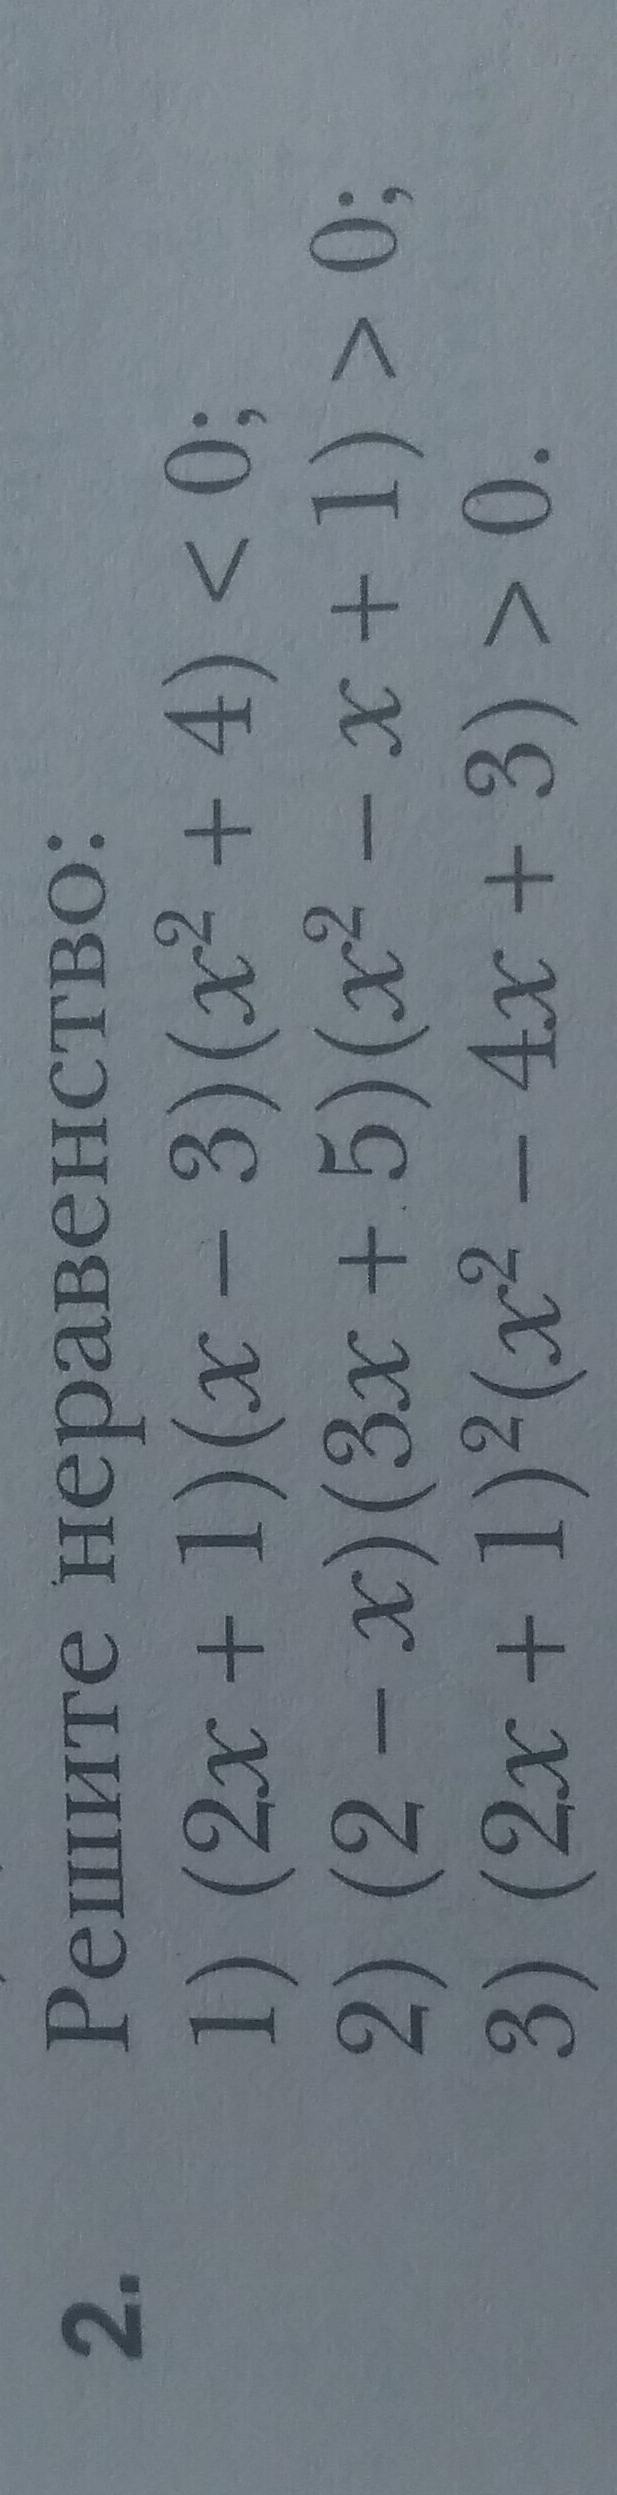 2. Решите неравенство:
1) (2x + 1)(x − 3)(x² + 4) < 0;
2) (2 − x)(3x + 5)(x² − x + 1) > 0;
3) (2x + 1)²(x² − 4x + 3) > 0.